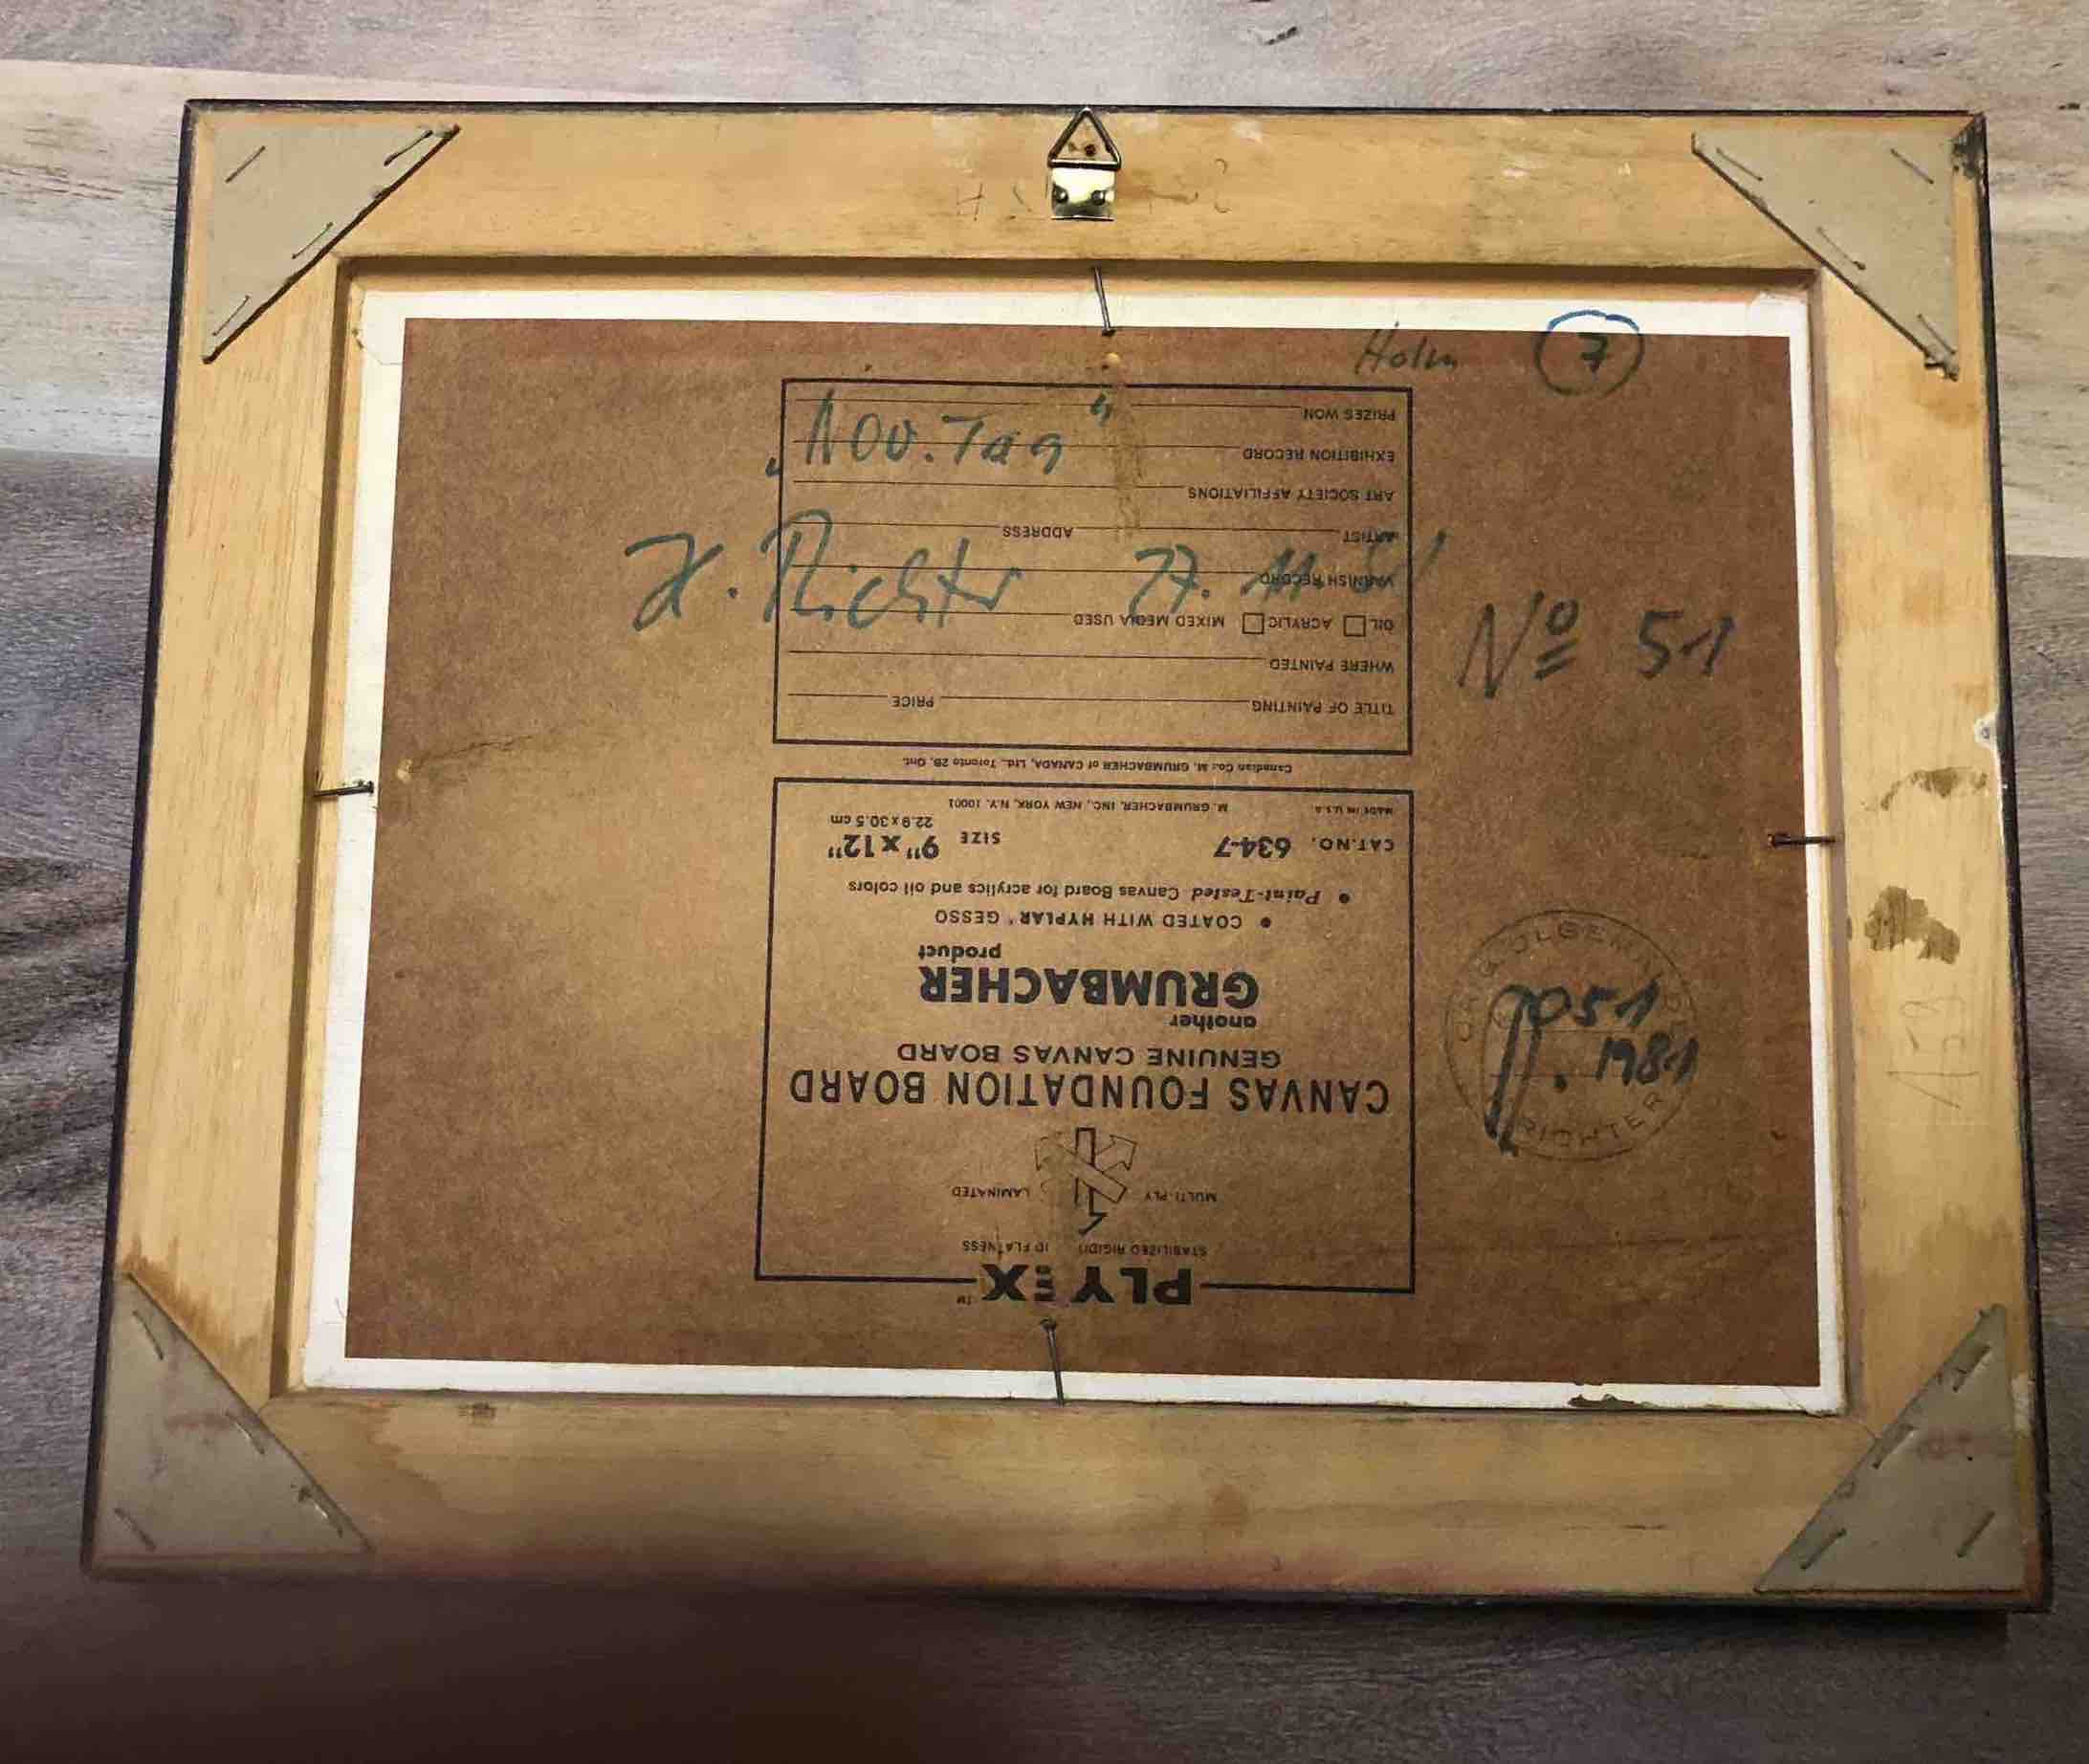 Holm 7
„Nov. Tag"
H. Richter 27. 11. 51
Nº 51
ÖLGEMÄLDE
051
1981
RICHTER
PLYEX™
STABILIZED RIGIDITY FLATNESS
MULTI-PLY LAMINATED
CANVAS FOUNDATION BOARD
GENUINE CANVAS BOARD
another
GRUMBACHER
product
• COATED WITH HYPLAR® GESSO
• Paint-Tested Canvas Board for acrylics and oil colors
CAT.NO. 634-7 SIZE 9" X 12"
22.9 x 30.5 cm
MADE IN U.S.A. M. GRUMBACHER, INC., NEW YORK, N.Y. 10001
Canadian Co.: M. GRUMBACHER of CANADA, Ltd., Toronto 2B, Ont.
TITLE OF PAINTING PRICE
WHERE PAINTED
OIL ACRYLIC MIXED MEDIA USED
VARNISH RECORD
ARTIST ADDRESS
ART SOCIETY AFFILIATIONS
EXHIBITION RECORD
PRIZES WON